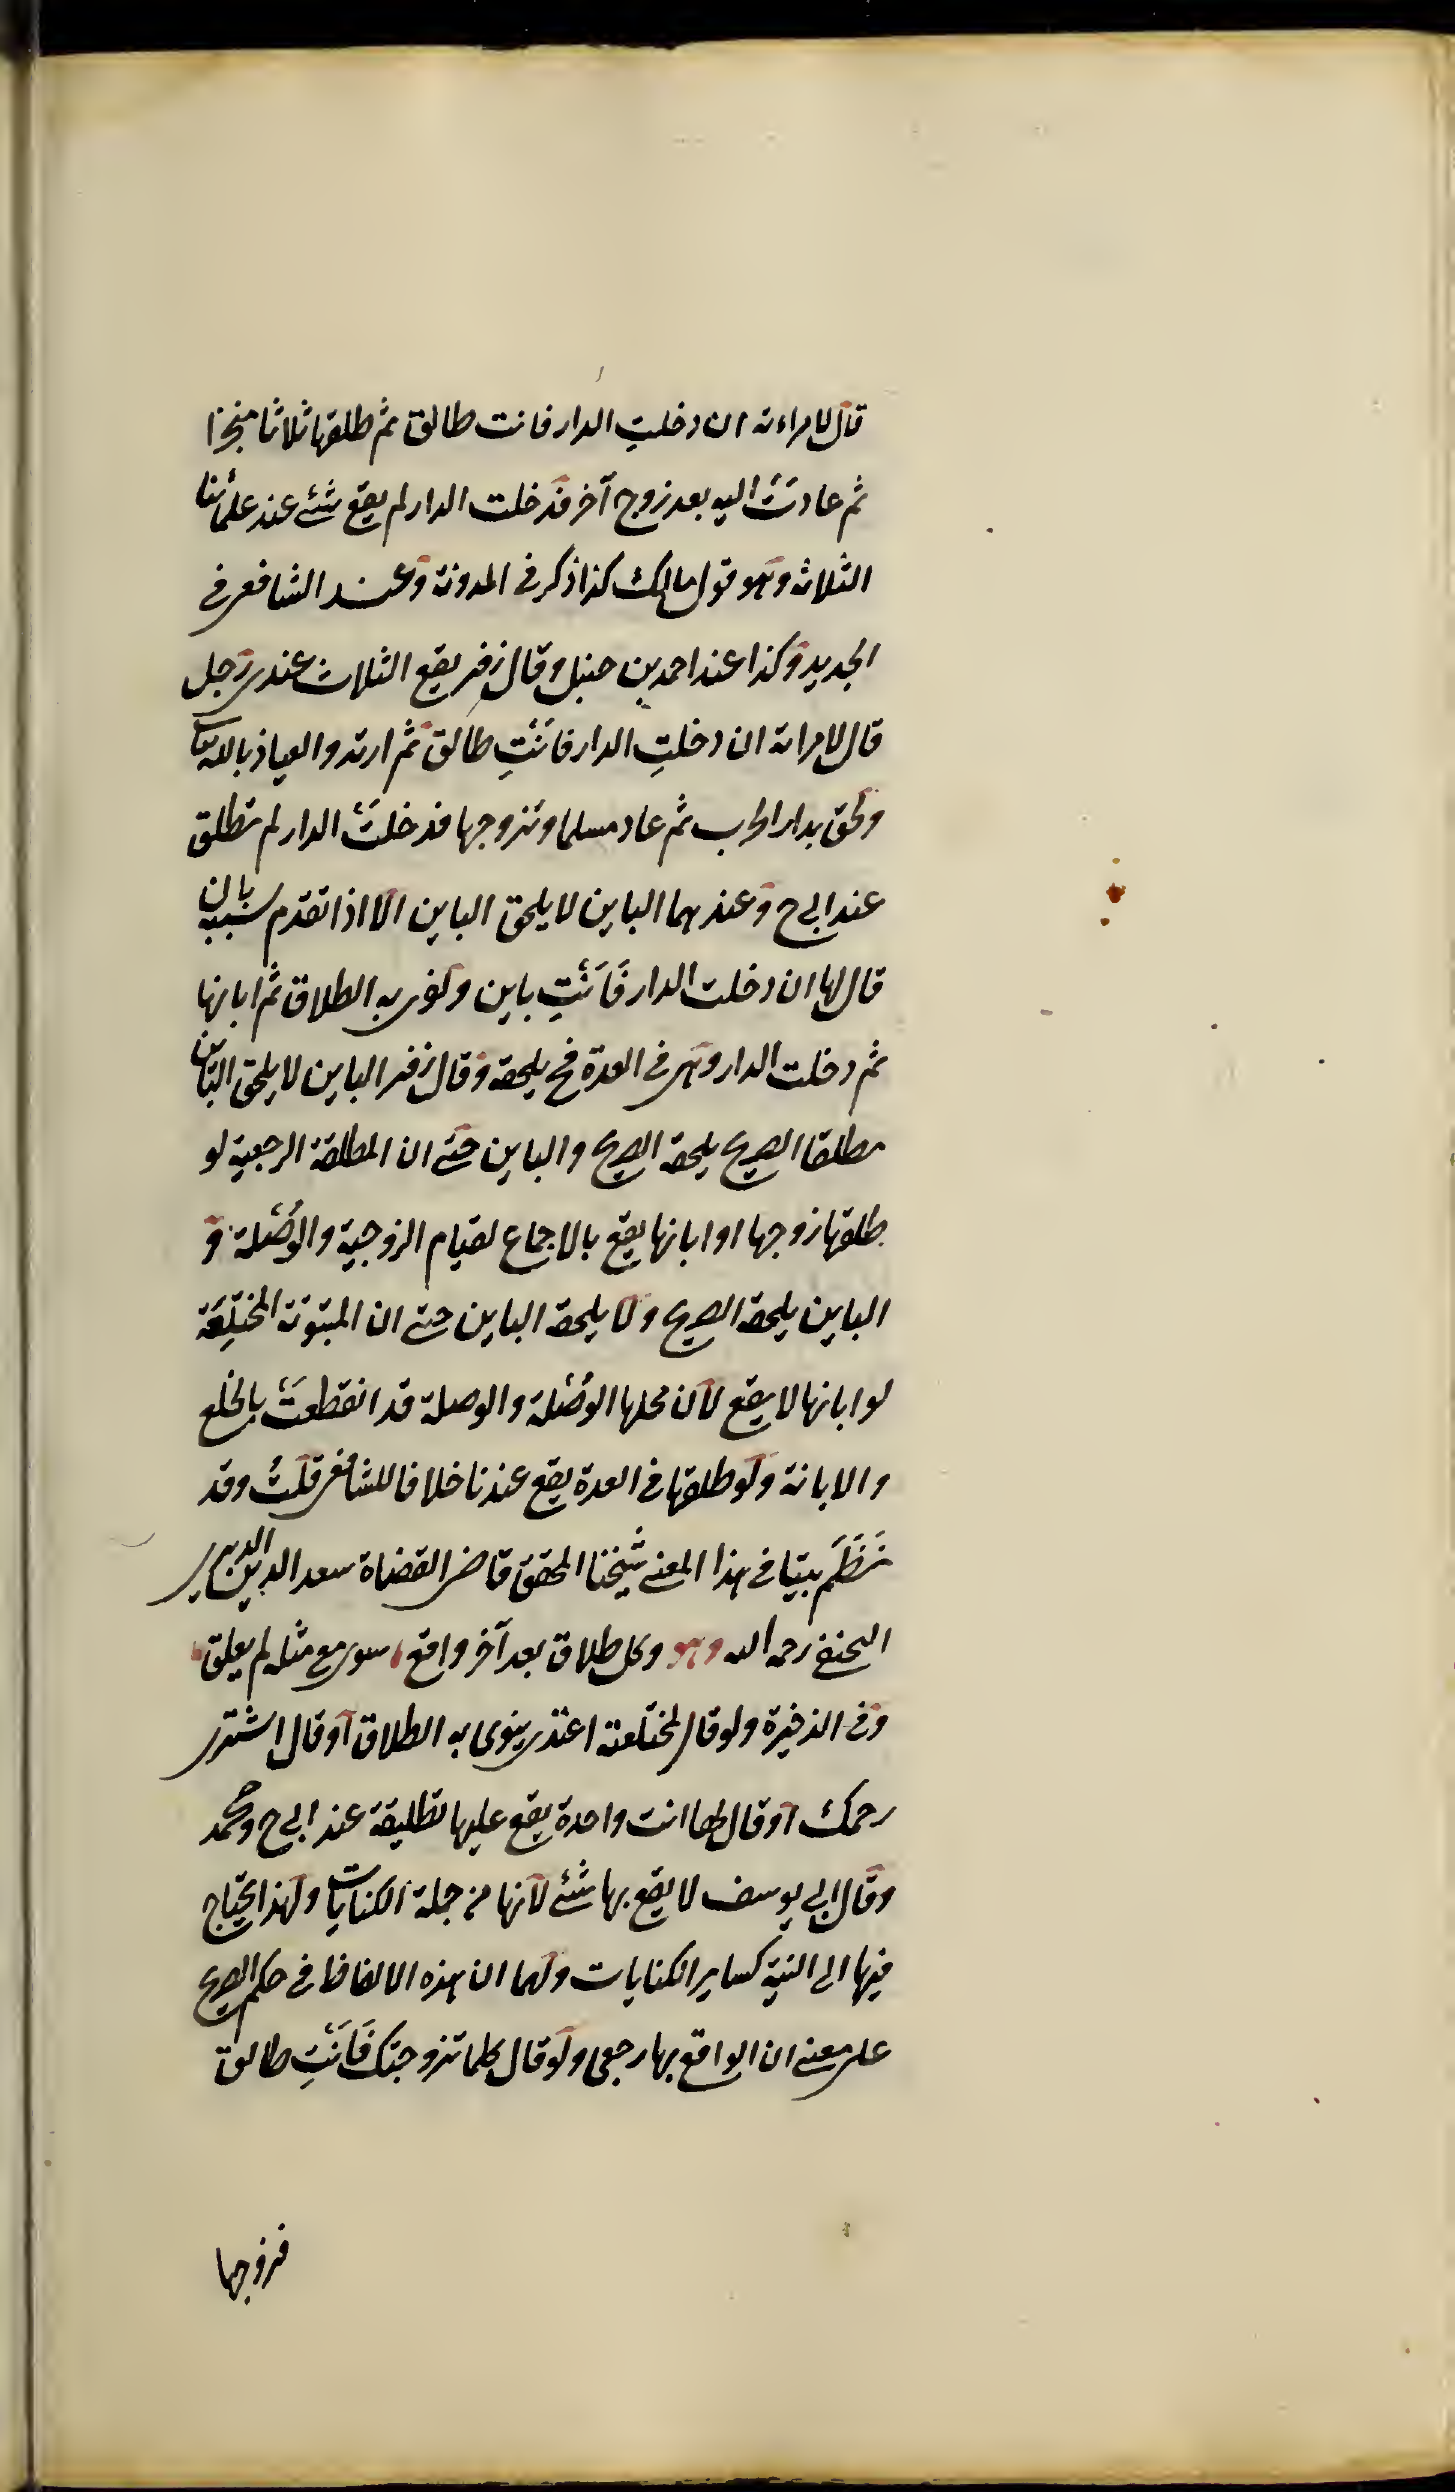 قال لامراءته ان دخلتِ الدار فانت طالق ثم طلقها ثلاثا منجزا
ثم عادتْ اليه بعد زوج آخر فدخلت الدار لم يقع شئ عند علمائنا
الثلاثه وهو قول مالك كذا ذكر فى المدونة وعند الشافعى فى
الجديد وكذا عند احمد بن حنبل وقال زفر يقع الثلاث عندى رجل
قال لامراته ان دخلتِ الدار فانْتِ طالق ثم ارتد والعياذ بالله تعا
ولحق بدار الحرب ثم عاد مسلما وتزوجها فدخلتْ الدار لم تطلق
عند ابى ح وعندهما الباين لا يلحق الباين الا اذا تقدم سببه بان
قال لها ان دخلت الدار فَاَنْتِ باين ونوى به الطلاق ثم ابانها
ثم دخلت الدار وهى فى العدة فح يلحقه وقال زفر الباين لا يلحق الباين
مطلقا الصريح يلحقه الصريح والباين حتى ان المطلقة الرجعية لو
طلقها زوجها او ابانها يقع بالاجماع لقيام الزوجية والوُصْلة و
الباين يلحقه الصريح ولا يلحقه الباين حتى ان المبتوتة المختلِعَة
لو ابانها لا يقع لان محلها الوُصْلة والوصلة قد انقطعَتْ بالخلع
والابانة ولو طلقها فى العدة يقع عندنا خلافا للشافعى قلتُ وقد
نَظَمَ بيتا فى هذا المعنى شيخنا المحقق قاضى القضاة سعد الدين الديرى
الحنفى رحمه الله وهو وكل طلاق بعد آخر واقع، سوى مع مثله لم يعلق
وفى الذخيرة ولو قال لمختلعته اعتدى ينوى به الطلاق او قال استبرى
رحمك او قال لها انت واحدة يقع عليها تطليقة عند ابى ح ومحمد
وقال ابى يوسف لا يقع بها شئ لانها من جملة الكنايات ولهذا يحتاج
فيها الى النية كساير الكنايات ولهما ان هذه الالفاظ فى حكم الصريح
على معنى ان الواقع بها رجعى ولو قال كلما تزوجتك فَاَنْتِ طالق
فزوجها